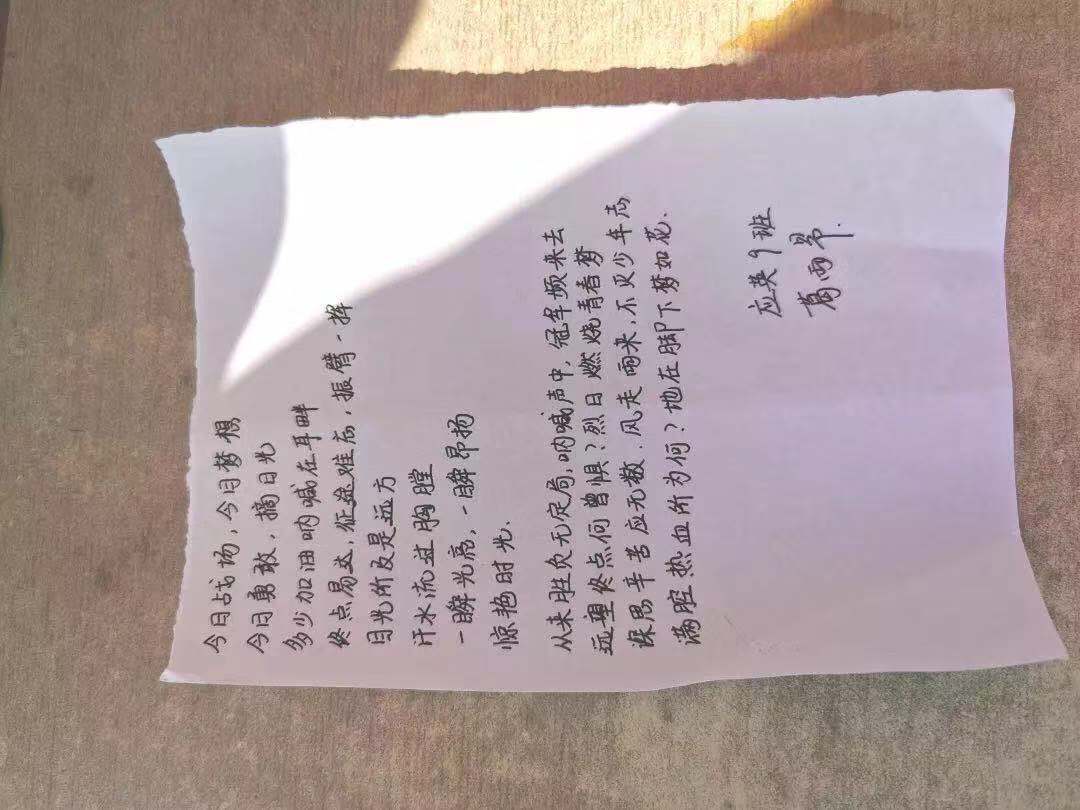 今日战场，今日梦想
今日勇敢，摘日光
多少加油呐喊在耳畔
终点易达，征途难忘，振臂一挥
目光所及是远方
汗水流过胸膛
一瞬光亮，一瞬昂扬
惊艳时光.
从来胜负无定局，呐喊声中，冠军频来去
远望终点何曾惧？烈日燃烧青春梦
深思辛苦应无数.风走雨来，不灭少年志
满腔热血所为何？地在脚下梦如花.
应英9班
葛雨昂.